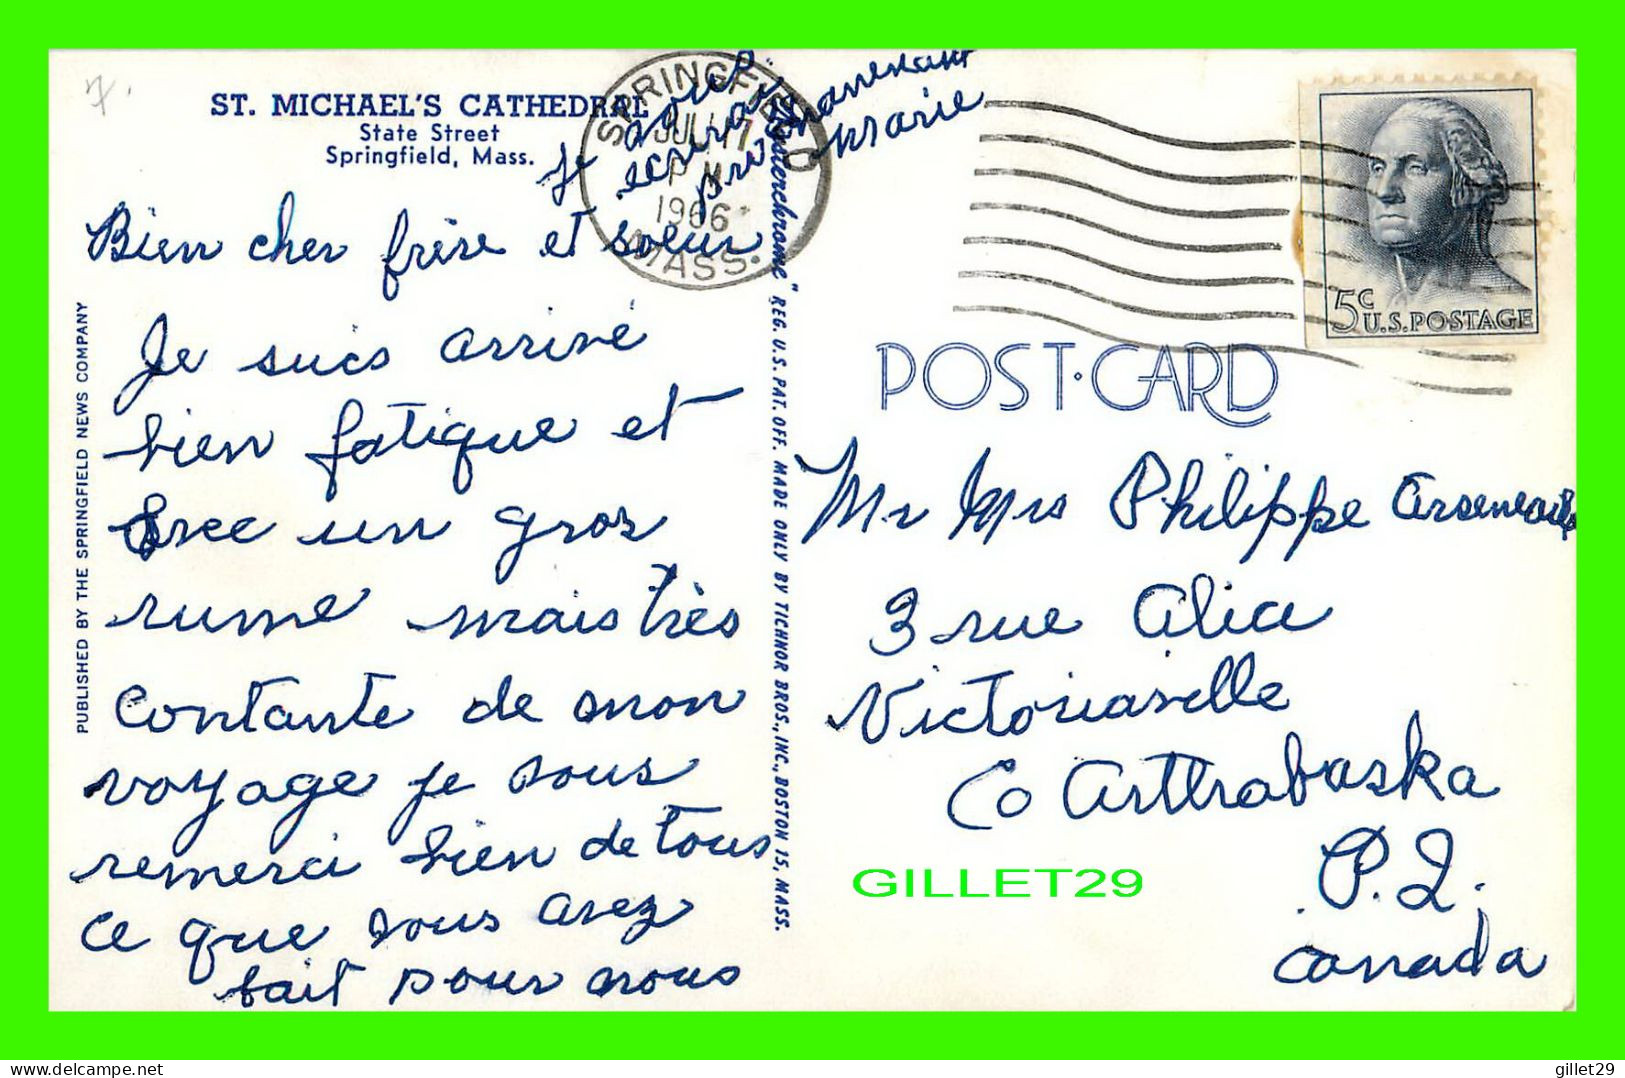 7.
ST. MICHAEL'S CATHEDRAL
State Street
Springfield, Mass.
SPRINGFIELD
JUL 17
PM
1966
MASS.
Bien cher frère et soeur
Je suis arrivé
bien fatique et
avec un gros
rume mais très
contante de mon
voyage je vous
remerci bien de tous
ce que vous avez
fait pour nous
je
ecrirai
Marie
PUBLISHED BY THE SPRINGFIELD NEWS COMPANY
REG. U.S. PAT. OFF. MADE ONLY BY TICHNOR BROS., INC., BOSTON 15, MASS.
5c
U.S. POSTAGE
POST·CARD
Mr Mrs Philippe Arseneault
3 rue Alice
Victoriaville
Co Arthabaska
P.Q.
Canada
GILLET29
gillet29